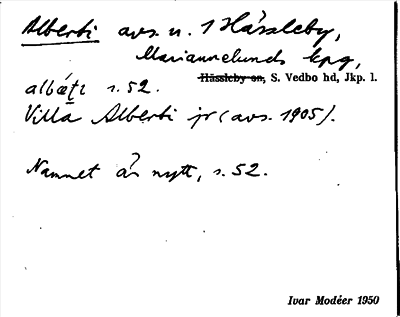 Alberti avs. n. 1 Hässleby,
Mariannelunds kpg,
Hässleby sn, S. Vedbo hd, Jkp. l.
albætɩ s. 52.
Villa Alberti jr (avs. 1905).
Namnet är nytt, s. 52.
Ivar Modéer 1950